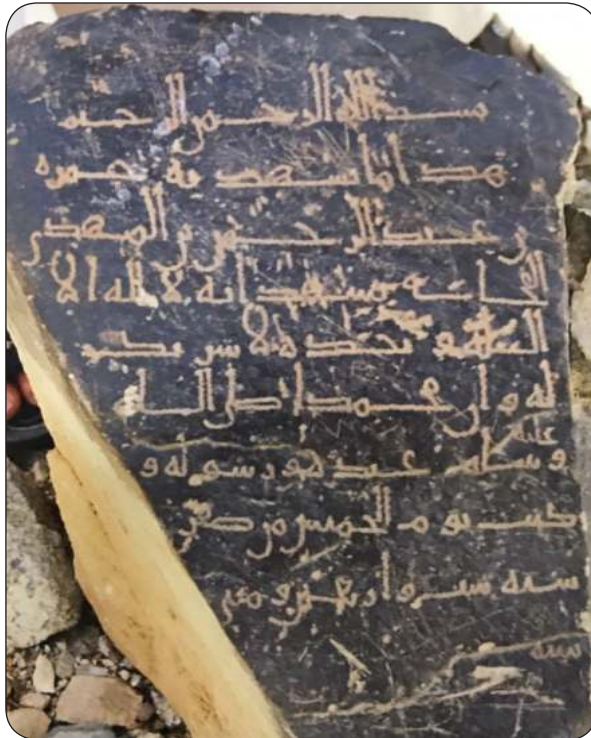 بسم الله الرحمن الرحيم
هذا ما شهد به حمزه
بن عبد الرحمن بن المهدي
شهد انه لا اله الا
الله وحده لا شريك
له وان محمدا صلى الله
عليه
وسلم عبده ورسوله و
كتب يوم الخميس من صفر
سنه وأربعين
سنه